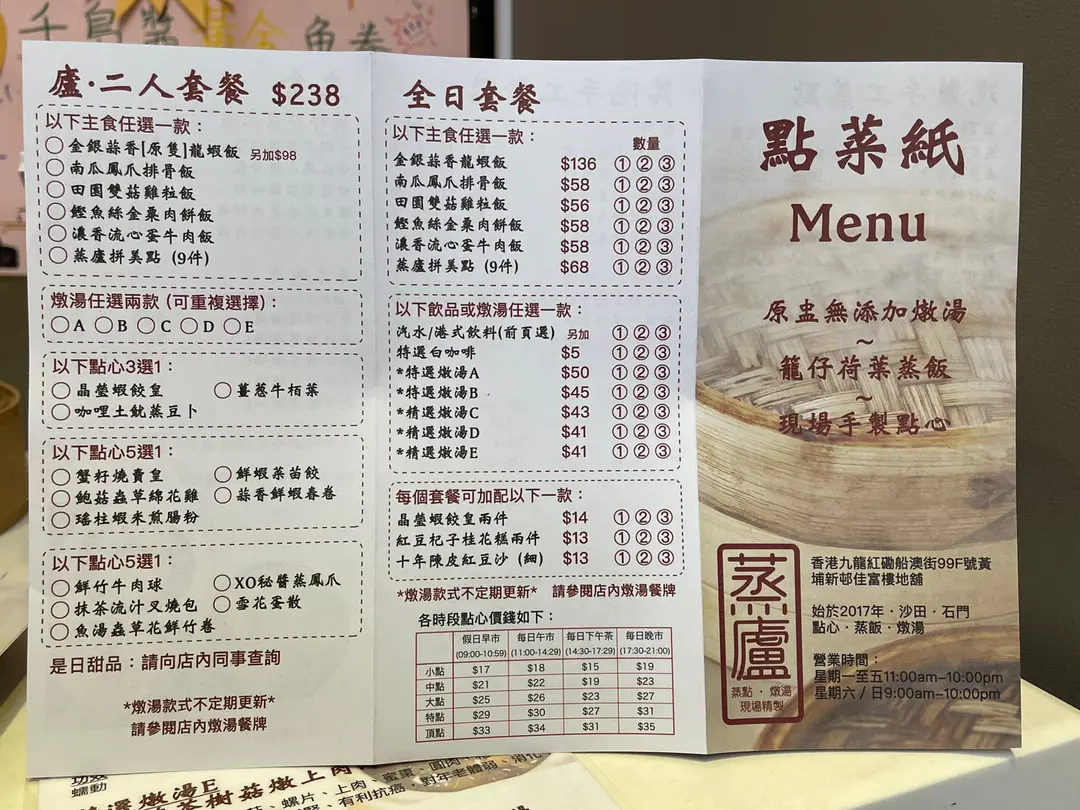 千島醬黃金魚卷
廬·二人套餐 $238
以下主食任選一款：
金銀蒜香[原隻]龍蝦飯 另加$98
南瓜鳳爪排骨飯
田園雙菇雞粒飯
鰹魚絲金粟肉餅飯
濃香流心蛋牛肉飯
蒸廬拼美點 (9件)
燉湯任選兩款 (可重複選擇)：
A B C D E
以下點心3選1：
晶瑩蝦餃皇 薑蔥牛栢葉
咖哩土魷蒸豆卜
以下點心5選1：
蟹籽燒賣皇 鮮蝦菜苗餃
鮑菇蟲草綿花雞 蒜香鮮蝦春卷
瑤柱蝦米煎腸粉
以下點心5選1：
鮮竹牛肉球 XO秘醬蒸鳳爪
抹茶流汁叉燒包 雪花蛋散
魚湯蟲草花鮮竹卷
是日甜品：請向店內同事查詢
*燉湯款式不定期更新*
請參閱店內燉湯餐牌
全日套餐
以下主食任選一款： 數量
金銀蒜香龍蝦飯 $136 ① ② ③
南瓜鳳爪排骨飯 $58 ① ② ③
田園雙菇雞粒飯 $56 ① ② ③
鰹魚絲金粟肉餅飯 $58 ① ② ③
濃香流心蛋牛肉飯 $58 ① ② ③
蒸廬拼美點 (9件) $68 ① ② ③
以下飲品或燉湯任選一款：
汽水/港式飲料(前頁選) 另加 ① ② ③
特選白咖啡 $5 ① ② ③
*特選燉湯A $50 ① ② ③
*特選燉湯B $45 ① ② ③
*精選燉湯C $43 ① ② ③
*精選燉湯D $41 ① ② ③
*精選燉湯E $41 ① ② ③
每個套餐可加配以下一款：
晶瑩蝦餃皇兩件 $14 ① ② ③
紅豆杞子桂花糕兩件 $13 ① ② ③
十年陳皮紅豆沙 (細) $13 ① ② ③
*燉湯款式不定期更新* 請參閱店內燉湯餐牌
各時段點心價錢如下：
假日早市 每日午市 每日下午茶 每日晚市
(09:00-10:59) (11:00-14:29) (14:30-17:29) (17:30-21:00)
小點 $17 $18 $15 $19
中點 $21 $22 $19 $23
大點 $25 $26 $23 $27
特點 $29 $30 $27 $31
頂點 $33 $34 $31 $35
點菜紙
Menu
原盅無添加燉湯
~
籠仔荷葉蒸飯
~
現場手製點心
蒸廬
蒸點·燉湯
現場精製
香港九龍紅磡船澳街99F號黃
埔新邨佳富樓地舖
始於2017年·沙田·石門
點心·蒸飯·燉湯
營業時間：
星期一至五11:00am–10:00pm
星期六 / 日9:00am–10:00pm
蠕動
選燉湯E
茶樹菇燉上肉
螺片、上肉、蜜棗、圓肉
有利抗癌，對年老體弱、消化